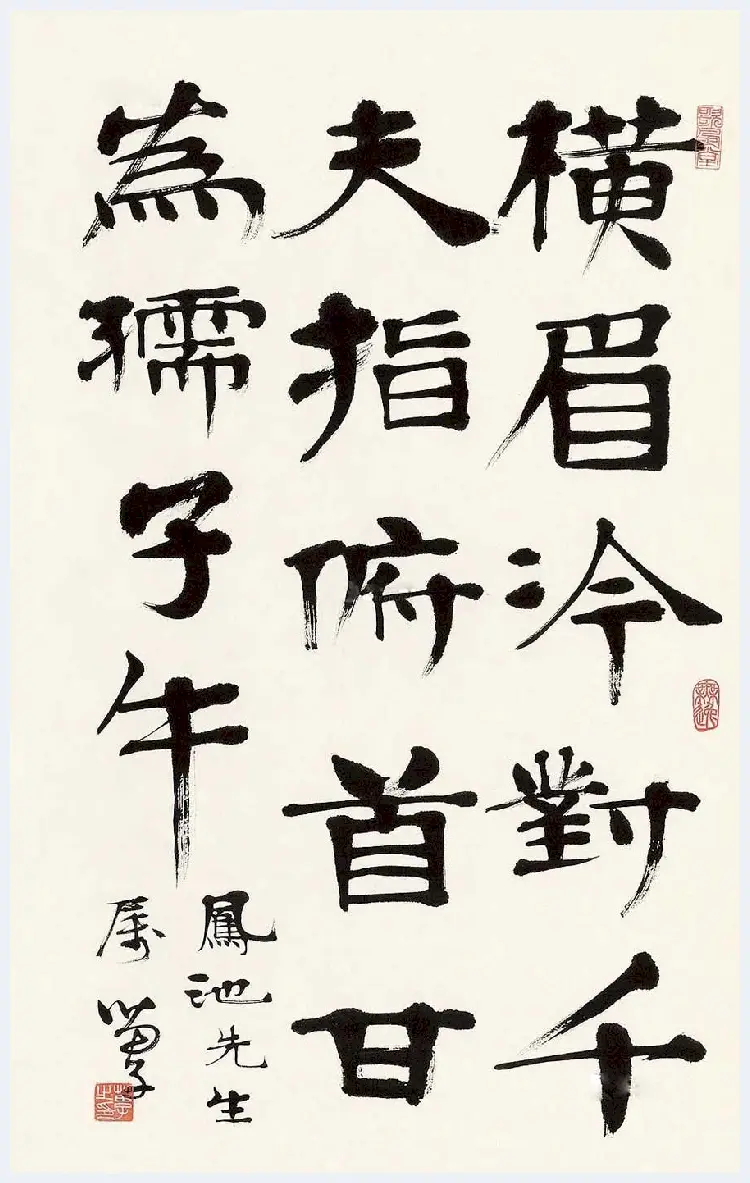 橫眉冷對千
夫指俯首甘
為孺子牛
鳳池先生
属